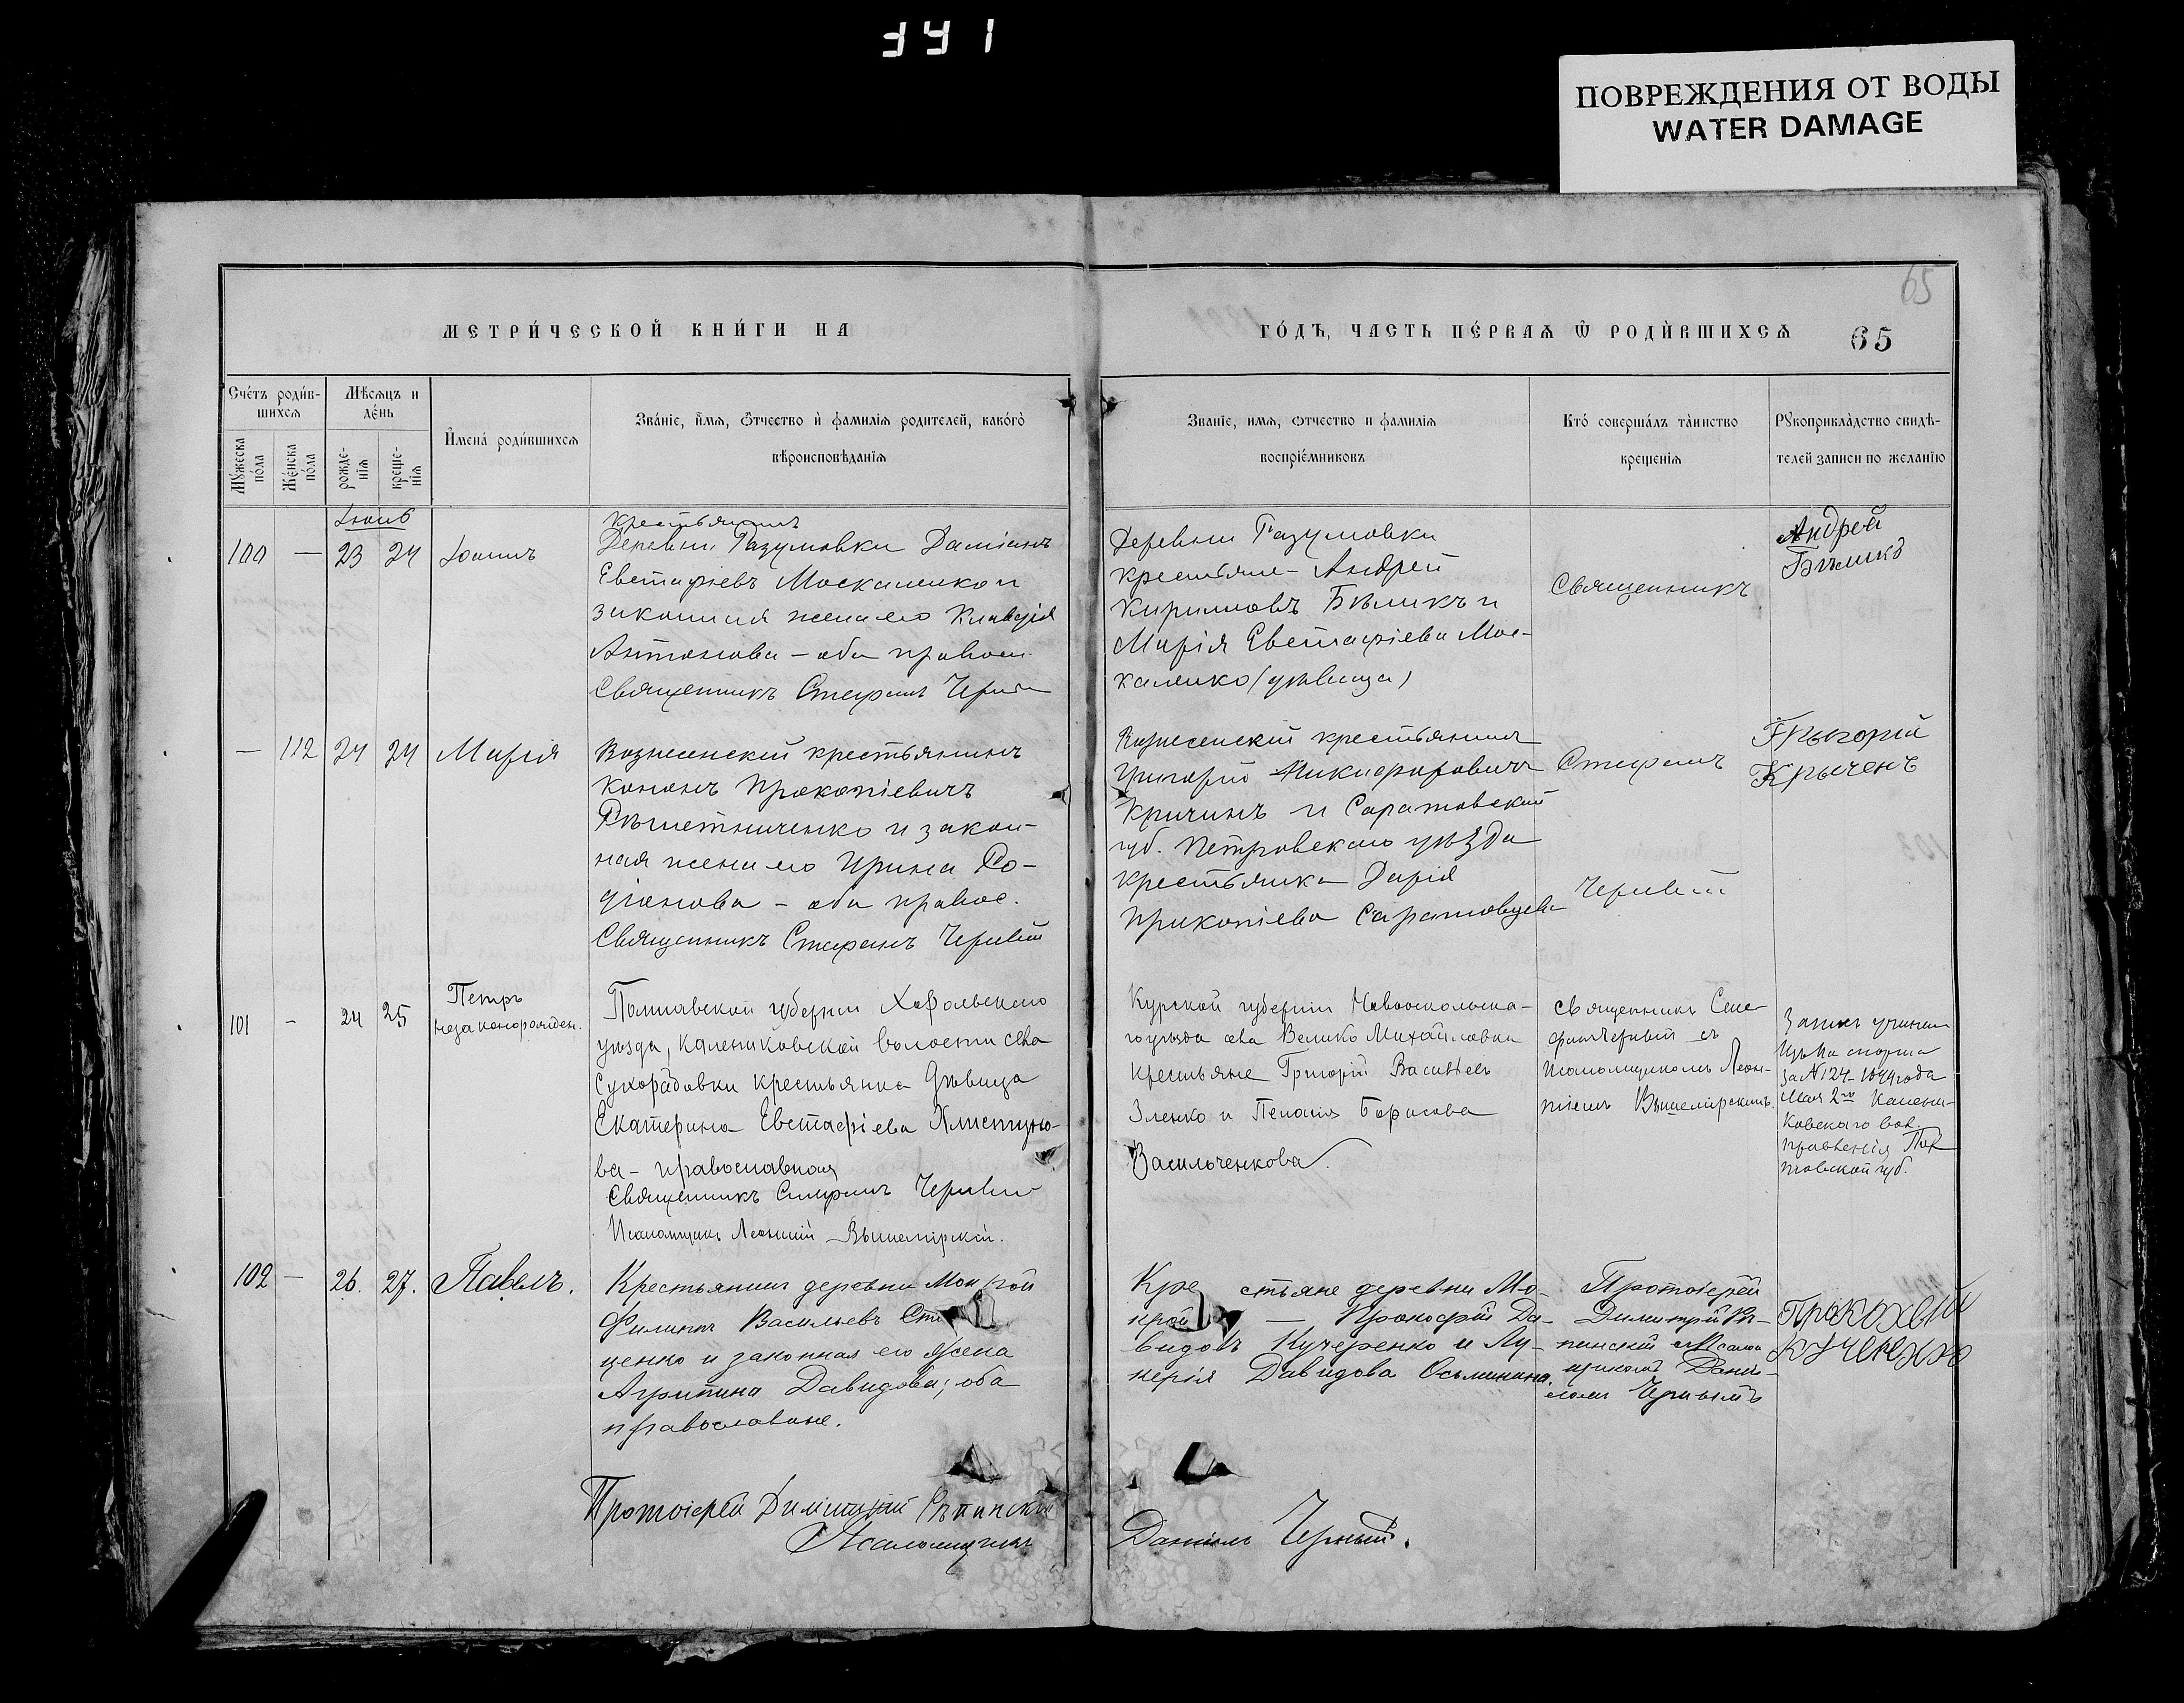 341
ПОВРЕЖДЕНИЯ ОТ ВОДЫ
WATER DAMAGE
65
МЕТРИ́ЧЕСКОЙ КНИ́ГИ НА
ГО́ДЪ, ЧАСТЬ ПЕ́РВАѦ Ѿ РОДИ́ВШИХСѦ
65
Сче́тъ роди́в-
шихсѧ
Мѣсѧцъ и
де́нь
И҆мена̀ роди́вшихсѧ
Зва́нїе, и҆́мѧ, ѻ҆́тчество и҆ фамилїѧ родителей, како́гѡ
вѣроисповѣданїѧ
Зва́нїе, имѧ, ѻтчество и фамилїѧ
воспрїе́мниковъ
Кто́ соверша́лъ та́инство
креще́нїѧ
Рꙋкоприкла́дство свидѣ-
телей записи по желанїю
Мꙋжеска
по́ла
Же́нска
по́ла
рожде-
нїѧ
креще-
нїѧ
Іюнь
100 — 23 24 Іоаннъ
крестьянинъ
Деревни Разумовки Даміанъ
Евстафіевъ Москаленко и
законная жена его Клавдія
Антонова – оба правосл.
Священникъ Стефанъ Черный
Деревни Разумовки
крестьяне – Андрей
Кирилловъ Бѣликъ и
Марія Евстафіева Мос-
каленко (дѣвица)
Священникъ
Андрей
Бѣликъ
— 112 24 24 Марія
Вознесенскій крестьянинъ
Кононъ Прокопіевичъ
Рѣшетниченко и закон-
ная жена его Ирина Ро-
діонова – оба правос.
Священникъ Стефанъ Черный
Вознесенскій крестьянинъ
Григорій Никифоровичъ
Кричинъ и Саратовской
губ. Петровскаго уѣзда
крестьянка Дарія
Прокопіева Саратовцева
Стефанъ
Черный
Грыгорий
Крыченъ
101 - 24 25 Петръ
незаконорожден.
Полтавской губерніи Хорольскаго
уѣзда, Калениковской волости села
Сухорабовки крестьянка дѣвица
Екатерина Евстафіева Хлистуно-
ва – православная
Священникъ Стефанъ Черный
Псаломщикъ Леонтій Вышемірскій.
Курской губерніи Новооскольска-
го уѣзда села Велико Михайловки
крестьяне Григорій Васильевъ
Зленко и Пелагія Борисова
Васильченкова.
священникъ Сте-
фанъ Черный съ
псаломщикомъ Леон-
тіемъ Вышемірскимъ.
Запись учинен
за № 124 – года
Мая 2го Калени-
ковскаго вол.
правленія Пол
тавской губ.
102 — 26. 27. Павелъ.
Крестьянинъ деревни Мокрой
Филиппъ Васильевъ Сте
ценко и законная его жена
Агрипина Давидова; оба
православные.
Крестьяне деревни Мо-
крой — Прокофій Да-
видовъ Кучеренко и Лу-
керія Давидова Осьминина.
Протоіерей
Димитрій Рѣ-
пинскій съ Псалом
щикомъ Дані-
иломъ Чернымъ
Протоіерей Димитрій Рѣпинскій
Псаломщикъ Даніилъ Черный.